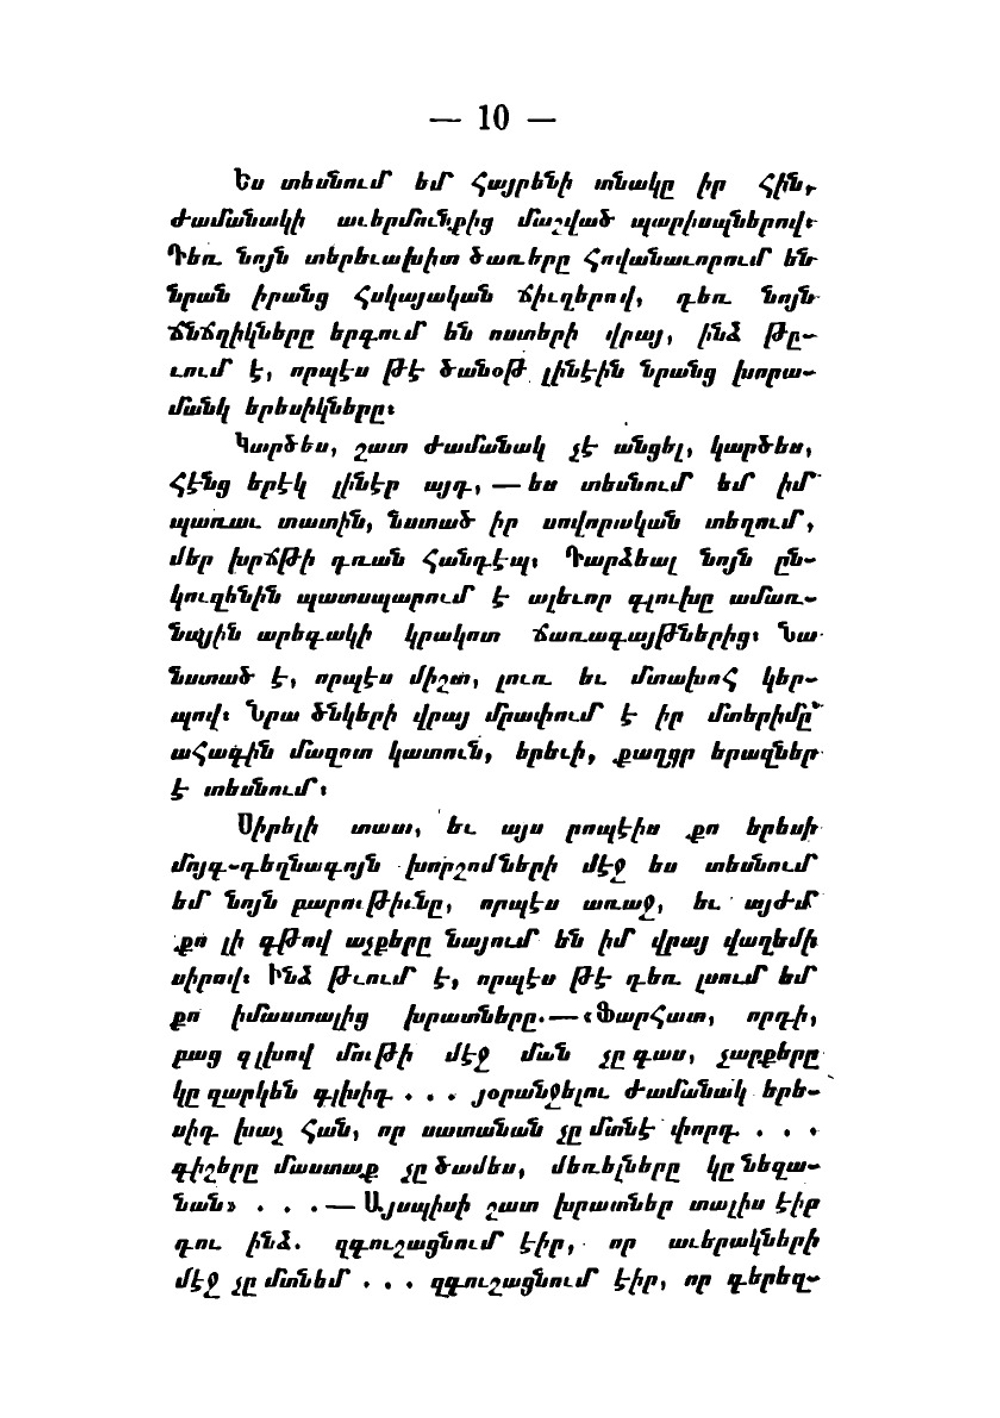 — 10 —
Ես տեսնում եմ հայրենի տնակը իր հին,
ժամանակի աւերմունքից մաշված պարիսպներով։
Դեռ նոյն տերեւախիտ ծառերը հովանաւորում են
նրան իրանց հսկայական ճիւղերով, դեռ նոյն
ճնճղիկները երգում են ոստերի վրայ, ինձ թը–
ւում է, որպէս թէ ծանօթ լինէին նրանց խորա–
մանկ երեսիկները։
Կարծես, շատ ժամանակ չէ անցել, կարծես,
հէնց երէկ լինէր այդ, — ես տեսնում եմ իմ
պառաւ տատին, նստած իր սովորական տեղում,
մեր խրճթի դռան հանդէպ։ Դարձեալ նոյն ըն–
կուզենին պատսպարում է ալեւոր գլուխը ամառ–
նային արեգակի կրակոտ ճառագայթներից։ Նա
նստած է, որպէս միշտ, լուռ եւ մտախոհ կեր–
պով։ Նրա ծնկերի վրայ մրափում է իր մտերիմը՝
ահագին մազոտ կատուն, երեւի, քաղցր երազներ
է տեսնում։
Սիրելի տատ, եւ այս րոպէիս քո երեսի
մոյգ–դեղնագոյն խորշոմների մէջ ես տեսնում
եմ նոյն բարութիւնը, որպէս առաջ, եւ այժմ
քո լի գթով աչքերը նայում են իմ վրայ վաղեմի
սիրով։ Ինձ թւում է, որպէս թէ դեռ լսում եմ
քո իմաստալից խրատները.— «Ֆարհատ, որդի,
բաց գլխով մութի մէջ ման չը գաս, չարքերը
կը զարկեն գլխիդ . . . յօրանջելու ժամանակ երե–
սիդ խաչ հան, որ սատանան չը մտնէ փորդ . . .
գիշերը մաստաք չը ծամես, մեռելները կը նեղա–
նան» . . . — Այսպիսի շատ խրատներ տալիս էիր
դու ինձ. զգուշացնում էիր, որ աւերակների
մէջ չը մտնեմ . . . զգուշացնում էիր, որ գերեզ–